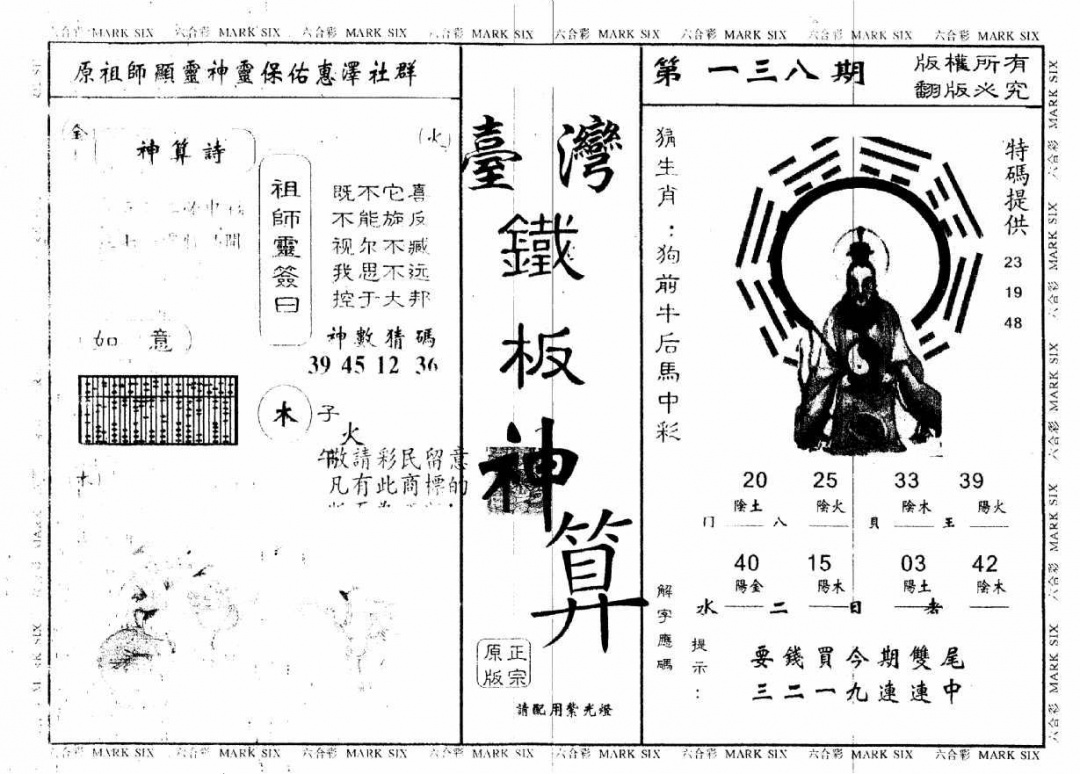 六合彩 MARK SIX 六合彩 MARK SIX 六合彩 MARK SIX 六合彩 MARK SIX 六合彩 MARK SIX 六合彩 MARK SIX 六合彩 MARK SIX 六合彩 MARK SIX
原祖師顯靈神靈保佑惠澤社群
金
火
神算詩
祖師靈簽曰
既不它喜
不能旋反
视尔不臧
我思不远
控于大邦
如意
神數猜碼
39 45 12 36
木
子
火
午
敬請彩民留意
凡有此商標的
木
臺灣
鐵
板
神
算
原版
正宗
請配用紫光燈
第一三八期
版權所有
翻版必究
猜生肖：狗前牛后馬中彩
特碼提供
23
19
48
20 25 33 39
陰土 陰火 陰木 陽火
門 八 貝 王
40 15 03 42
陽金 陽木 陽土 陰木
水 二 日 者
解字應碼
提示：
要錢買今期雙尾
三二一九連連中
六合彩 MARK SIX 六合彩 MARK SIX 六合彩 MARK SIX 六合彩 MARK SIX 六合彩 MARK SIX
六合彩 MARK SIX 六合彩 MARK SIX 六合彩 MARK SIX 六合彩 MARK SIX 六合彩 MARK SIX 六合彩 MARK SIX 六合彩 MARK SIX 六合彩 MARK SIX